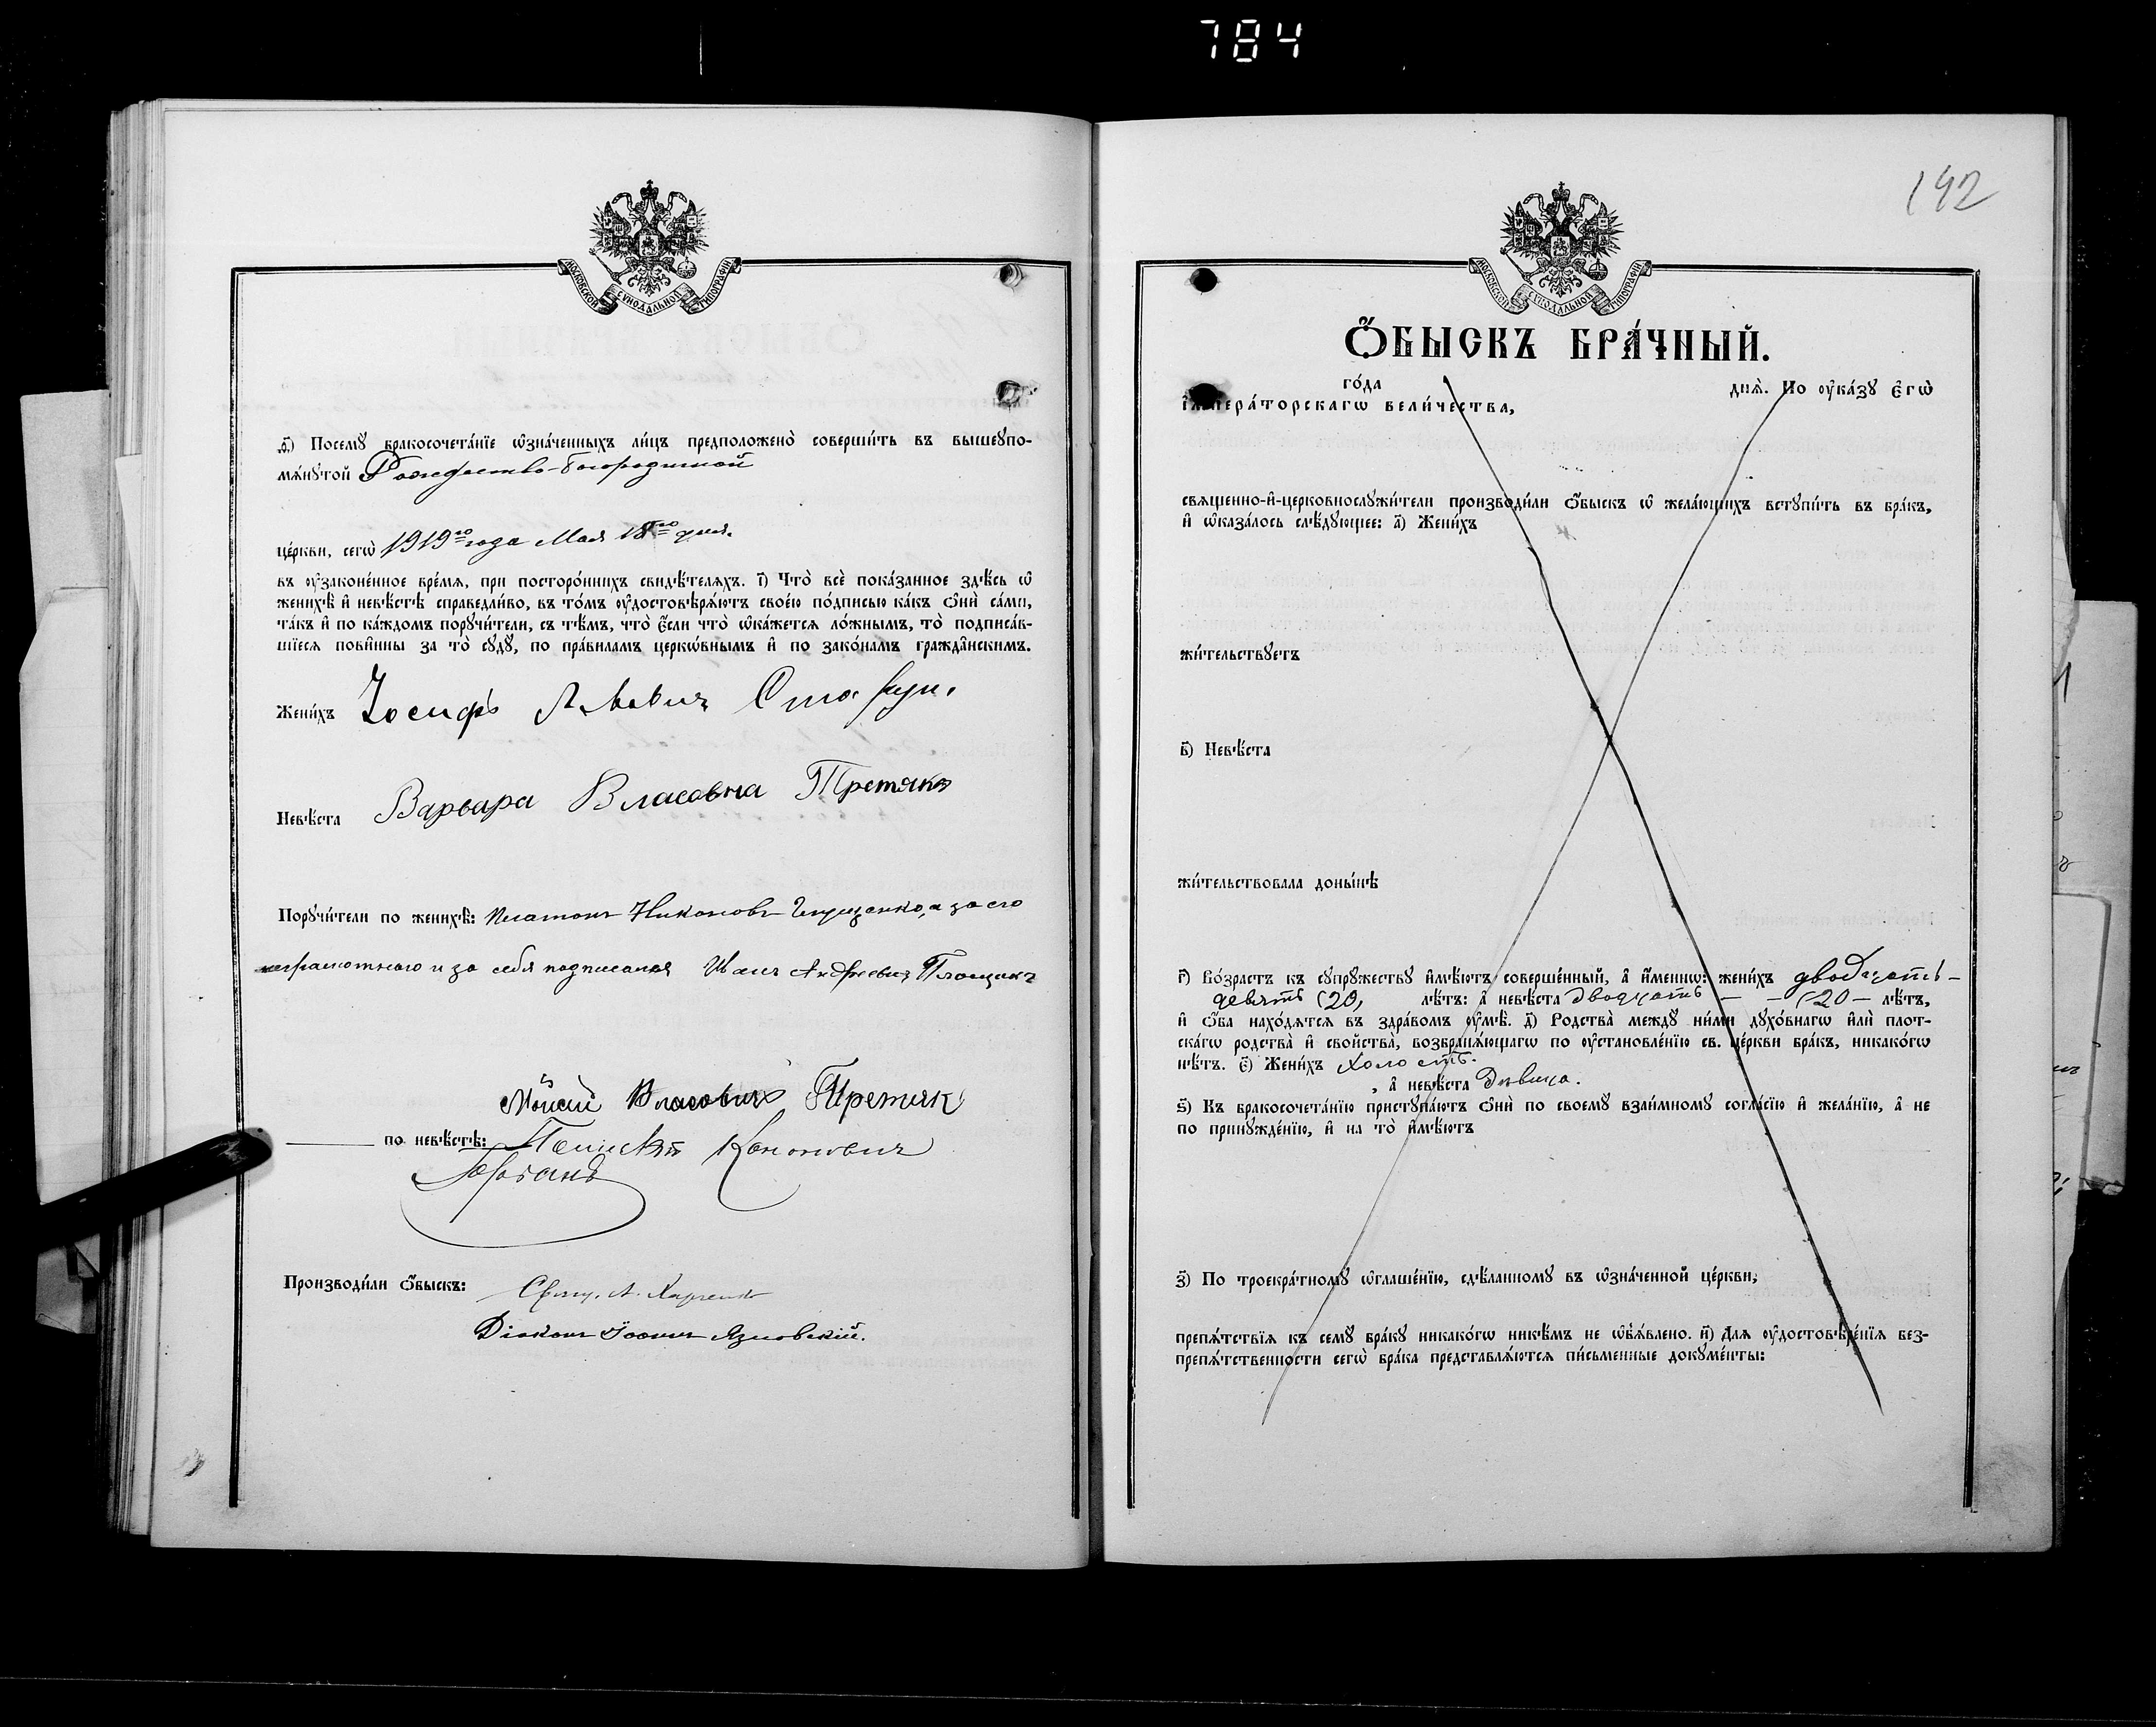 784
МОСКОВСКОЙ СѴНОДАЛЬНОЙ ТИПОГРАФІИ
ѳ҃) Посемꙋ бракосочета́нїе ѡ҆зна́ченныхъ ли́цъ предположено̀ соверши́ть въ вышеꙋпо-
мѧ́нꙋтой Рождество-Богородичной
це́ркви, сегѡ̀ 1919го года Мая 18го дня.
въ оу҆законе́нное вре́мѧ, при посторо́ннихъ свидѣ́телѧхъ. і҃) Что̀ всѐ пока́занное здѣ́сь ѡ҆
женихѣ̀ и҆ невѣ́стѣ справедли́во, въ то́мъ оу҆достовѣрѧ́ютъ свое́ю по́дписью ка́къ ѻ҆нѝ са́ми,
та́къ и҆ по ка́ждомъ порꙋчи́тели, съ тѣ́мъ, что̀ є҆́сли что̀ ѡ҆ка́жетсѧ ло́жнымъ, то̀ подписа́в-
шїесѧ пови́нны за то̀ сꙋдꙋ̀, по пра́виламъ церко́внымъ и҆ по зако́намъ гражда́нскимъ.
Жени́хъ Іосифъ Львовичъ
Невѣ́ста Варвара Власовна Третякъ
Порꙋчи́тели по женихѣ̀: Платонъ Никоновъ а за его
неграмотного и за себя подписался Иванъ Андреевичъ
Моисей Власовичъ Третяк
по невѣ́стѣ: Кононович
Производи́ли ѻ҆́быскъ: Свящ. А.
Діаконъ Іоаннъ
142
МОСКОВСКОЙ СѴНОДАЛЬНОЙ ТИПОГРАФІИ
Ѻ҆́БЫСКЪ БРА́ЧНЫЙ.
го́да днѧ̀. По оу҆ка́зꙋ є҆гѡ̀
і҆мпера́торскагѡ вели́чества,
свѧщенно-и҆-церковнослꙋжи́тели производи́ли ѻ҆́быскъ ѡ҆ жела́ющихъ встꙋпи́ть въ бра́къ,
и҆ ѡ҆каза́лось слѣ́дꙋющее: а҃) Жени́хъ
жи́тельствꙋетъ
в҃) Невѣ́ста
жи́тельствовала доны́нѣ
г҃) Во́зрастъ къ сꙋпрꙋ́жествꙋ и҆мѣ́ютъ соверше́нный, а҆ и҆́меннѡ: жени́хъ двадцать-
девять (29, лѣ́тъ: а҆ невѣ́ста двадцать — — (20 — лѣ́тъ,
и҆ ѻ҆́ба нахо́дѧтсѧ въ здра́вомъ оу҆мѣ̀. д҃) Родства̀ междꙋ̀ ни́ми дꙋхо́внагѡ и҆лѝ плот-
ска́гѡ родства̀ и҆ сво́йства, возбранѧ́ющагѡ по оу҆становле́нїю св. це́ркви бра́къ, никако́гѡ
нѣ́тъ. є҃) Жени́хъ холостъ.
, а҆ невѣ́ста дѣвица.
ѕ҃) Къ бракосочета́нїю пристꙋпа́ютъ ѻ҆нѝ по своемꙋ̀ взаи́мномꙋ согла́сїю и҆ жела́нїю, а҆ не
по принꙋжде́нїю, и҆ на то̀ и҆мѣ́ютъ
з҃) По троекра́тномꙋ ѡ҆глаше́нїю, сдѣ́ланномꙋ въ ѡ҆зна́ченной це́ркви,
препѧ́тствїѧ къ семꙋ̀ бра́кꙋ никако́гѡ никѣ́мъ не ѡ҆б̾ѧ́влено. и҃) Длѧ̀ оу҆достовѣре́нїѧ без-
препѧ́тственности сегѡ̀ бра́ка представлѧ́ютсѧ пи́сьменные докꙋме́нты: